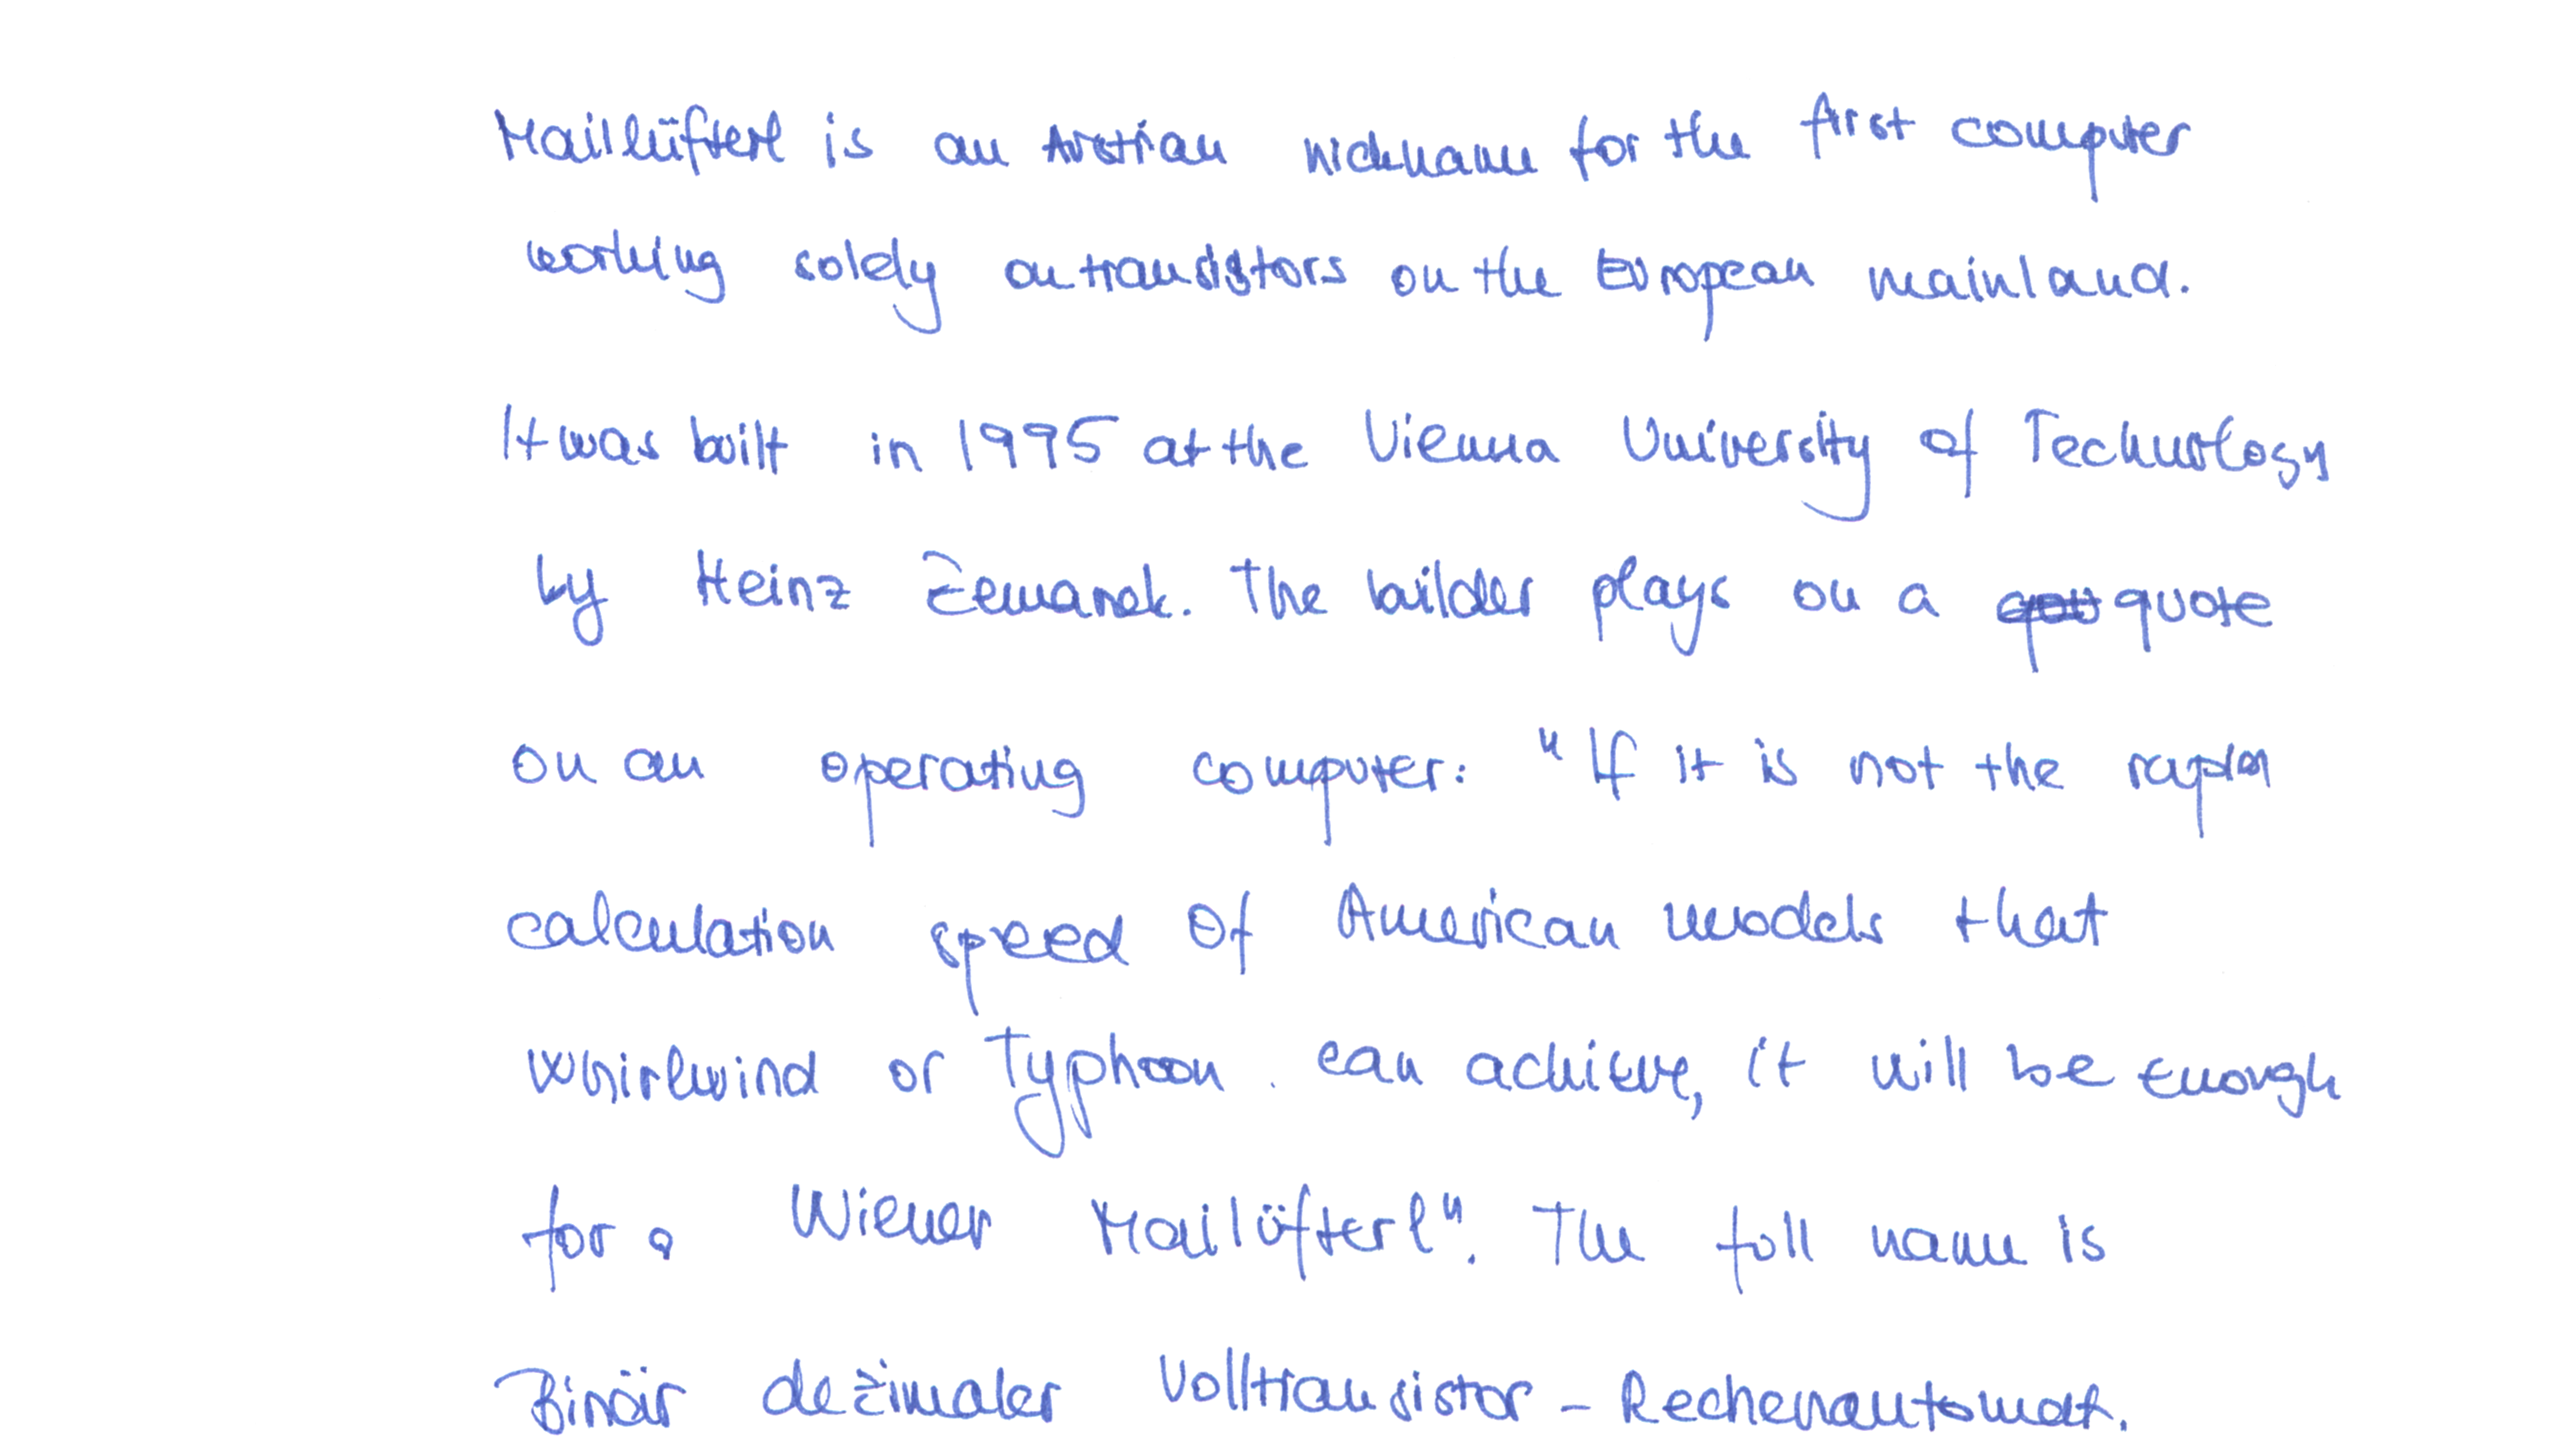 Maillüfterl is an Austrian nickname for the first computer
working solely on transistors on the European mainland.
It was built in 1995 at the Vienna University of Technology
by Heinz Zemanek. The builder plays on a quote
on an operating computer: "If it is not the rapid
calculation speed of American models that
Whirlwind or Typhoon can achieve, it will be enough
for a Wiener Mailüfterl". The full name is
Binär dezimaler Volltransistor - Rechenautomat.